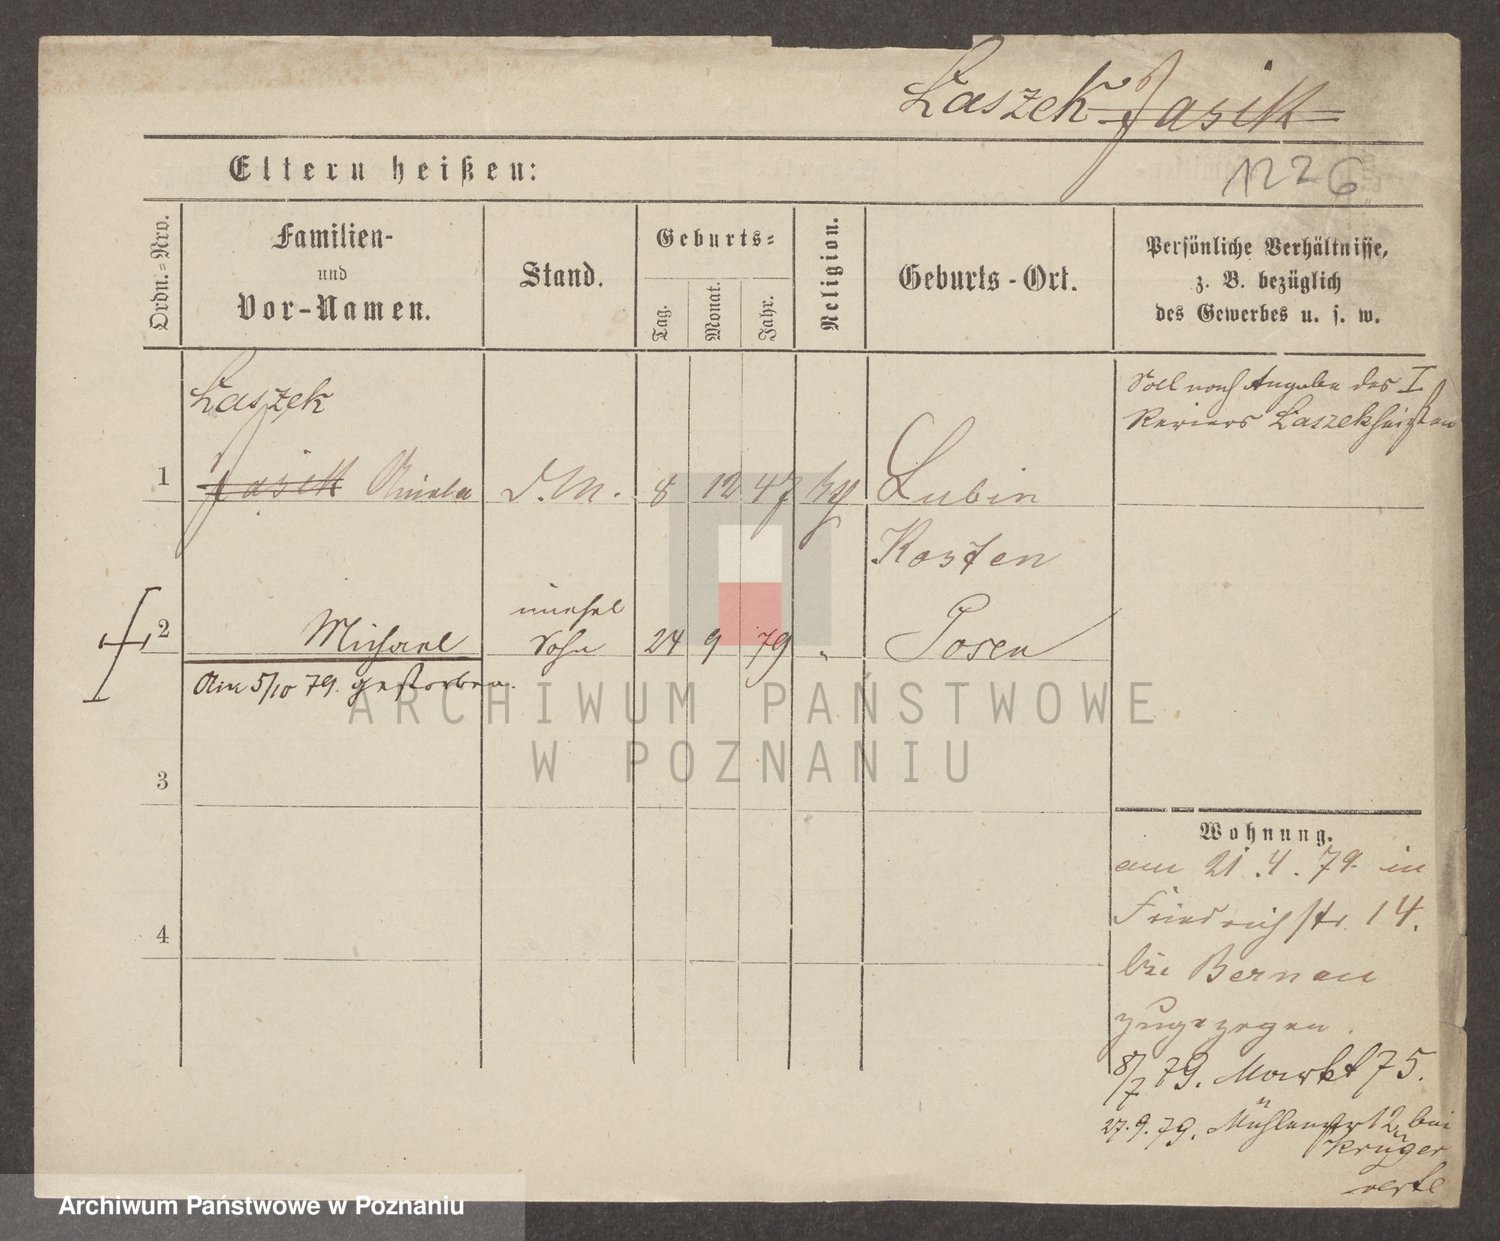 Łaszek Jasik
1226
Eltern heißen:
Ordn.-Nro.
Familien-
und
Vor-Namen.
Stand.
Geburts-
Tag.
Monat.
Jahr.
Religion.
Geburts-Ort.
Persönliche Verhältnisse,
z. B. bezüglich
des Gewerbes u. s. w.
Soll nach Angabe des I
Reviers Łaszek heißen
Łaszek
1 Jasik Aniela D.M. 8 12 47 Lubin
Kosten
unehel
2 Michael Sohn 24 9 79 " Posen
Am 5/10 79. gestorben.
3
Wohnung.
am 21.4.79. in
Friedrichstr. 14.
4
bei Bernau
zugezogen.
8/7 79. Markt 75.
27.9.79. Mühlenstr 12, bei
Krüger
ARCHIWUM PAŃSTWOWE
W POZNANIU
Archiwum Państwowe w Poznaniu